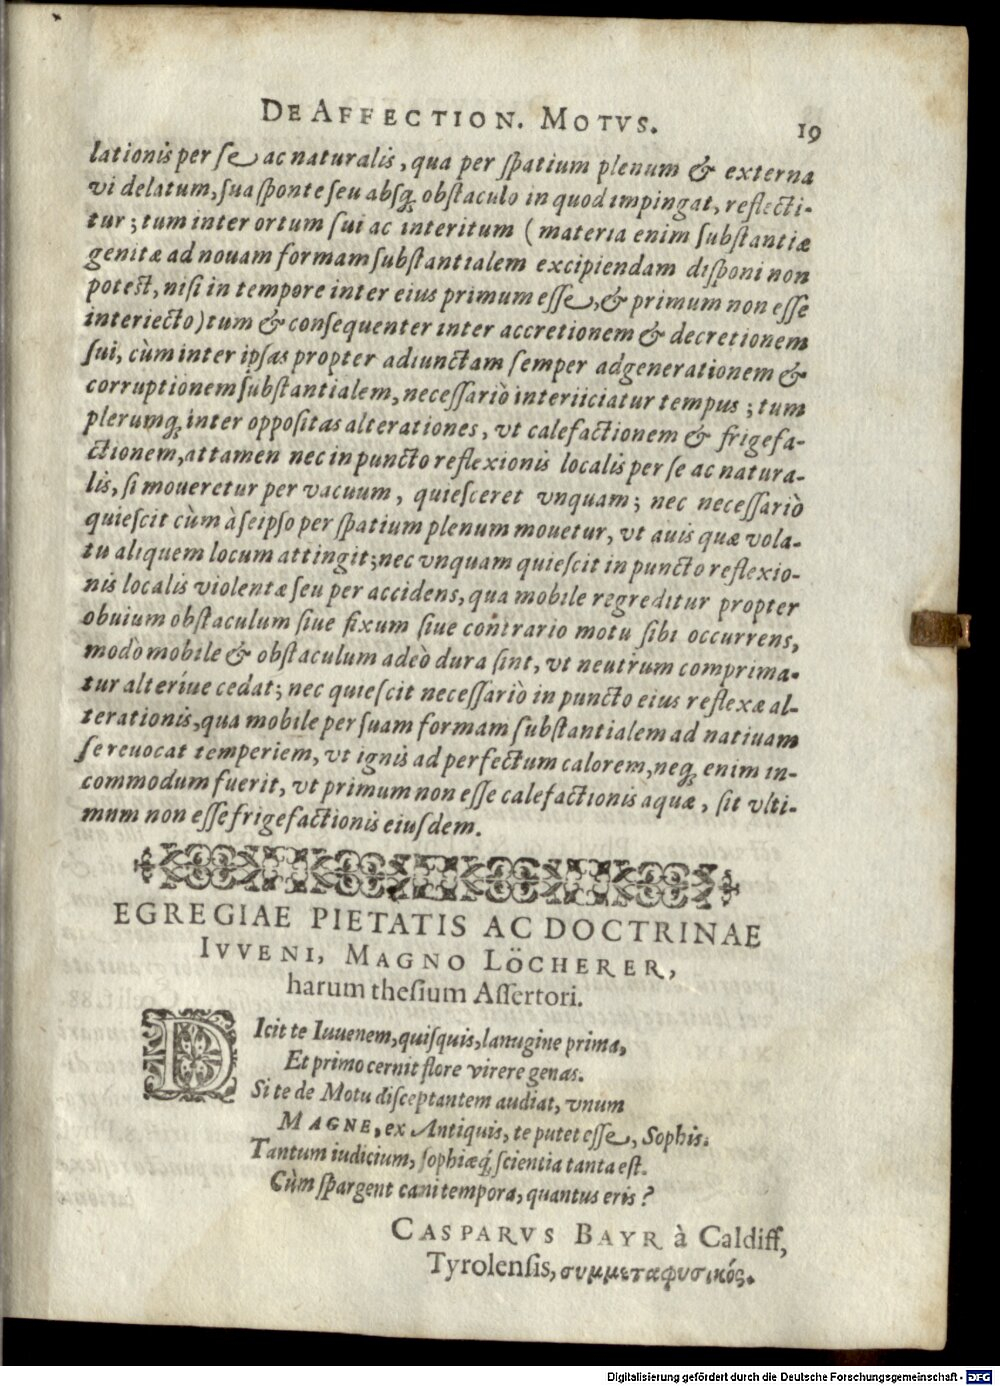 DE AFFECTION. MOTVS. 19
lationis per se ac naturalis, qua per spatium plenum & externa
vi delatum, sua sponte seu absq; obstaculo in quod impingat, reflecti-
tur; tum inter ortum sui ac interitum (materia enim substantiæ
genitæ ad nouam formam substantialem excipiendam disponi non
potest, nisi in tempore inter eius primum esse, & primum non esse
interiecto) tum & consequenter inter accretionem & decretionem
sui, cùm inter ipsas propter adiunctam semper ad generationem &
corruptionem substantialem, necessariò interiiciatur tempus; tum
plerumq; inter oppositas alterationes, vt calefactionem & frigefa-
ctionem, attamen nec in puncto reflexionis localis per se ac natura-
lis, si moueretur per vacuum, quiesceret vnquam; nec necessariò
quiescit cùm à seipso per spatium plenum mouetur, vt auis quæ vola-
tu aliquem locum attingit; nec vnquam quiescit in puncto reflexio-
nis localis violentæ seu per accidens, qua mobile regreditur propter
obuium obstaculum siue fixum siue contrario motu sibi occurrens,
modò mobile & obstaculum adeò dura sint, vt neutrum comprima-
tur alteriue cedat; nec quiescit necessariò in puncto eius reflexæ al-
terationis, qua mobile per suam formam substantialem ad natiuam
se reuocat temperiem, vt ignis ad perfectum calorem, neq; enim in-
commodum fuerit, vt primum non esse calefactionis aquæ, sit vlti-
mum non esse frigefactionis eiusdem.
EGREGIAE PIETATIS AC DOCTRINAE
IVVENI, MAGNO LÖCHERER,
harum thesium Assertori.
DIcit te Iuuenem, quisquis, lanugine prima,
Et primo cernit flore virere genas.
Si te de Motu disceptantem audiat, vnum
MAGNE, ex Antiquis, te putet esse, Sophis.
Tantum iudicium, sophiæq; scientia tanta est.
Cùm spargent cani tempora, quantus eris?
CASPARVS BAYR à Caldiff,
Tyrolensis, συμμεταφυσικός.
Digitalisierung gefördert durch die Deutsche Forschungsgemeinschaft - DFG